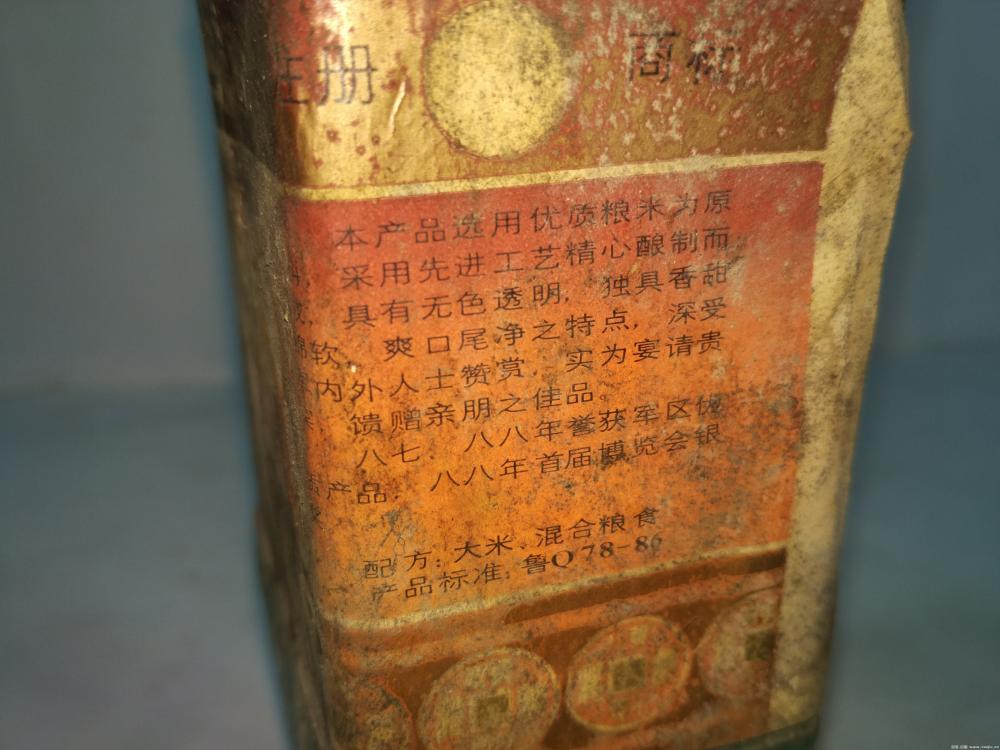 注册 商标
本产品选用优质粮米为原
采用先进工艺精心酿制而
具有无色透明,独具香甜
绵软、爽口尾净之特点,深受
内外人士赞赏,实为宴请贵
馈赠亲朋之佳品。
八七、八八年誉获军区优
质产品,八八年首届博览会银
配方:大米、混合粮食
产品标准:鲁Q78-86